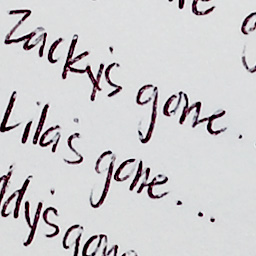 Zacky's gone.
Lila's gone...
ddy's gone